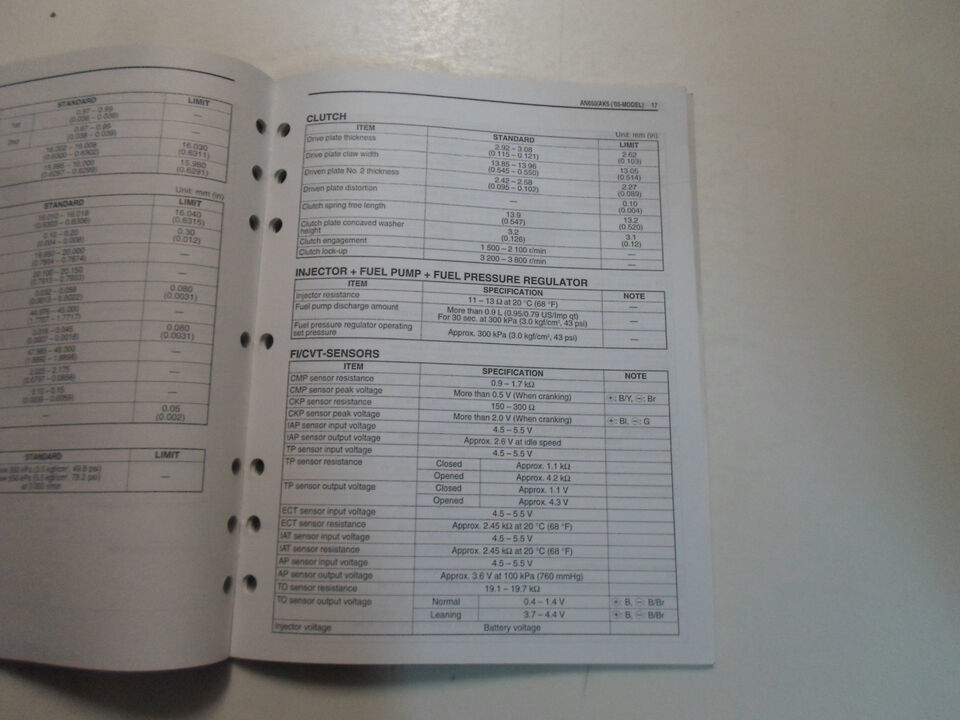 STANDARD LIMIT
0.97 – 0.99
(0.038 – 0.039) —
1st
2nd
16.030
(0.6311)
15.980
(0.6291)
Unit: mm (in)
STANDARD LIMIT
16.040
(0.6315)
0.10 – 0.20 0.30
(0.004 – 0.008) (0.012)
—
—
0.080
(0.0031)
—
0.080
(0.0031)
—
—
—
— 0.05
(0.002)
STANDARD LIMIT
—
AN650/AK5 ('05-MODEL) 17
CLUTCH
Unit: mm (in)
ITEM STANDARD LIMIT
Drive plate thickness 2.92 – 3.08 2.62
(0.115 – 0.121) (0.103)
Drive plate claw width 13.85 – 13.96 13.05
(0.545 – 0.550) (0.514)
Driven plate No. 2 thickness 2.42 – 2.58 2.27
(0.095 – 0.102) (0.089)
Driven plate distortion — 0.10
(0.004)
Clutch spring free length 13.9 13.2
(0.547) (0.520)
Clutch plate concaved washer 3.2 3.1
height (0.126) (0.12)
Clutch engagement 1 500 – 2 100 r/min —
Clutch lock-up 3 200 – 3 800 r/min —
INJECTOR + FUEL PUMP + FUEL PRESSURE REGULATOR
ITEM SPECIFICATION NOTE
Injector resistance 11 – 13 Ω at 20 °C (68 °F) —
Fuel pump discharge amount More than 0.9 L (0.95/0.79 US/Imp qt)
For 30 sec. at 300 kPa (3.0 kgf/cm², 43 psi) —
Fuel pressure regulator operating Approx. 300 kPa (3.0 kgf/cm², 43 psi) —
set pressure
FI/CVT-SENSORS
ITEM SPECIFICATION NOTE
CMP sensor resistance 0.9 – 1.7 kΩ
CMP sensor peak voltage More than 0.5 V (When cranking) ⊕: B/Y, ⊖: Br
CKP sensor resistance 150 – 300 Ω
CKP sensor peak voltage More than 2.0 V (When cranking) ⊕: Bl, ⊖: G
IAP sensor input voltage 4.5 – 5.5 V
IAP sensor output voltage Approx. 2.6 V at idle speed
TP sensor input voltage 4.5 – 5.5 V
TP sensor resistance Closed Approx. 1.1 kΩ
Opened Approx. 4.2 kΩ
TP sensor output voltage Closed Approx. 1.1 V
Opened Approx. 4.3 V
ECT sensor input voltage 4.5 – 5.5 V
ECT sensor resistance Approx. 2.45 kΩ at 20 °C (68 °F)
IAT sensor input voltage 4.5 – 5.5 V
IAT sensor resistance Approx. 2.45 kΩ at 20 °C (68 °F)
AP sensor input voltage 4.5 – 5.5 V
AP sensor output voltage Approx. 3.6 V at 100 kPa (760 mmHg)
TO sensor resistance 19.1 – 19.7 kΩ
TO sensor output voltage Normal 0.4 – 1.4 V ⊕: B, ⊖: B/Br
Leaning 3.7 – 4.4 V ⊕: B, ⊖: B/Br
Injector voltage Battery voltage